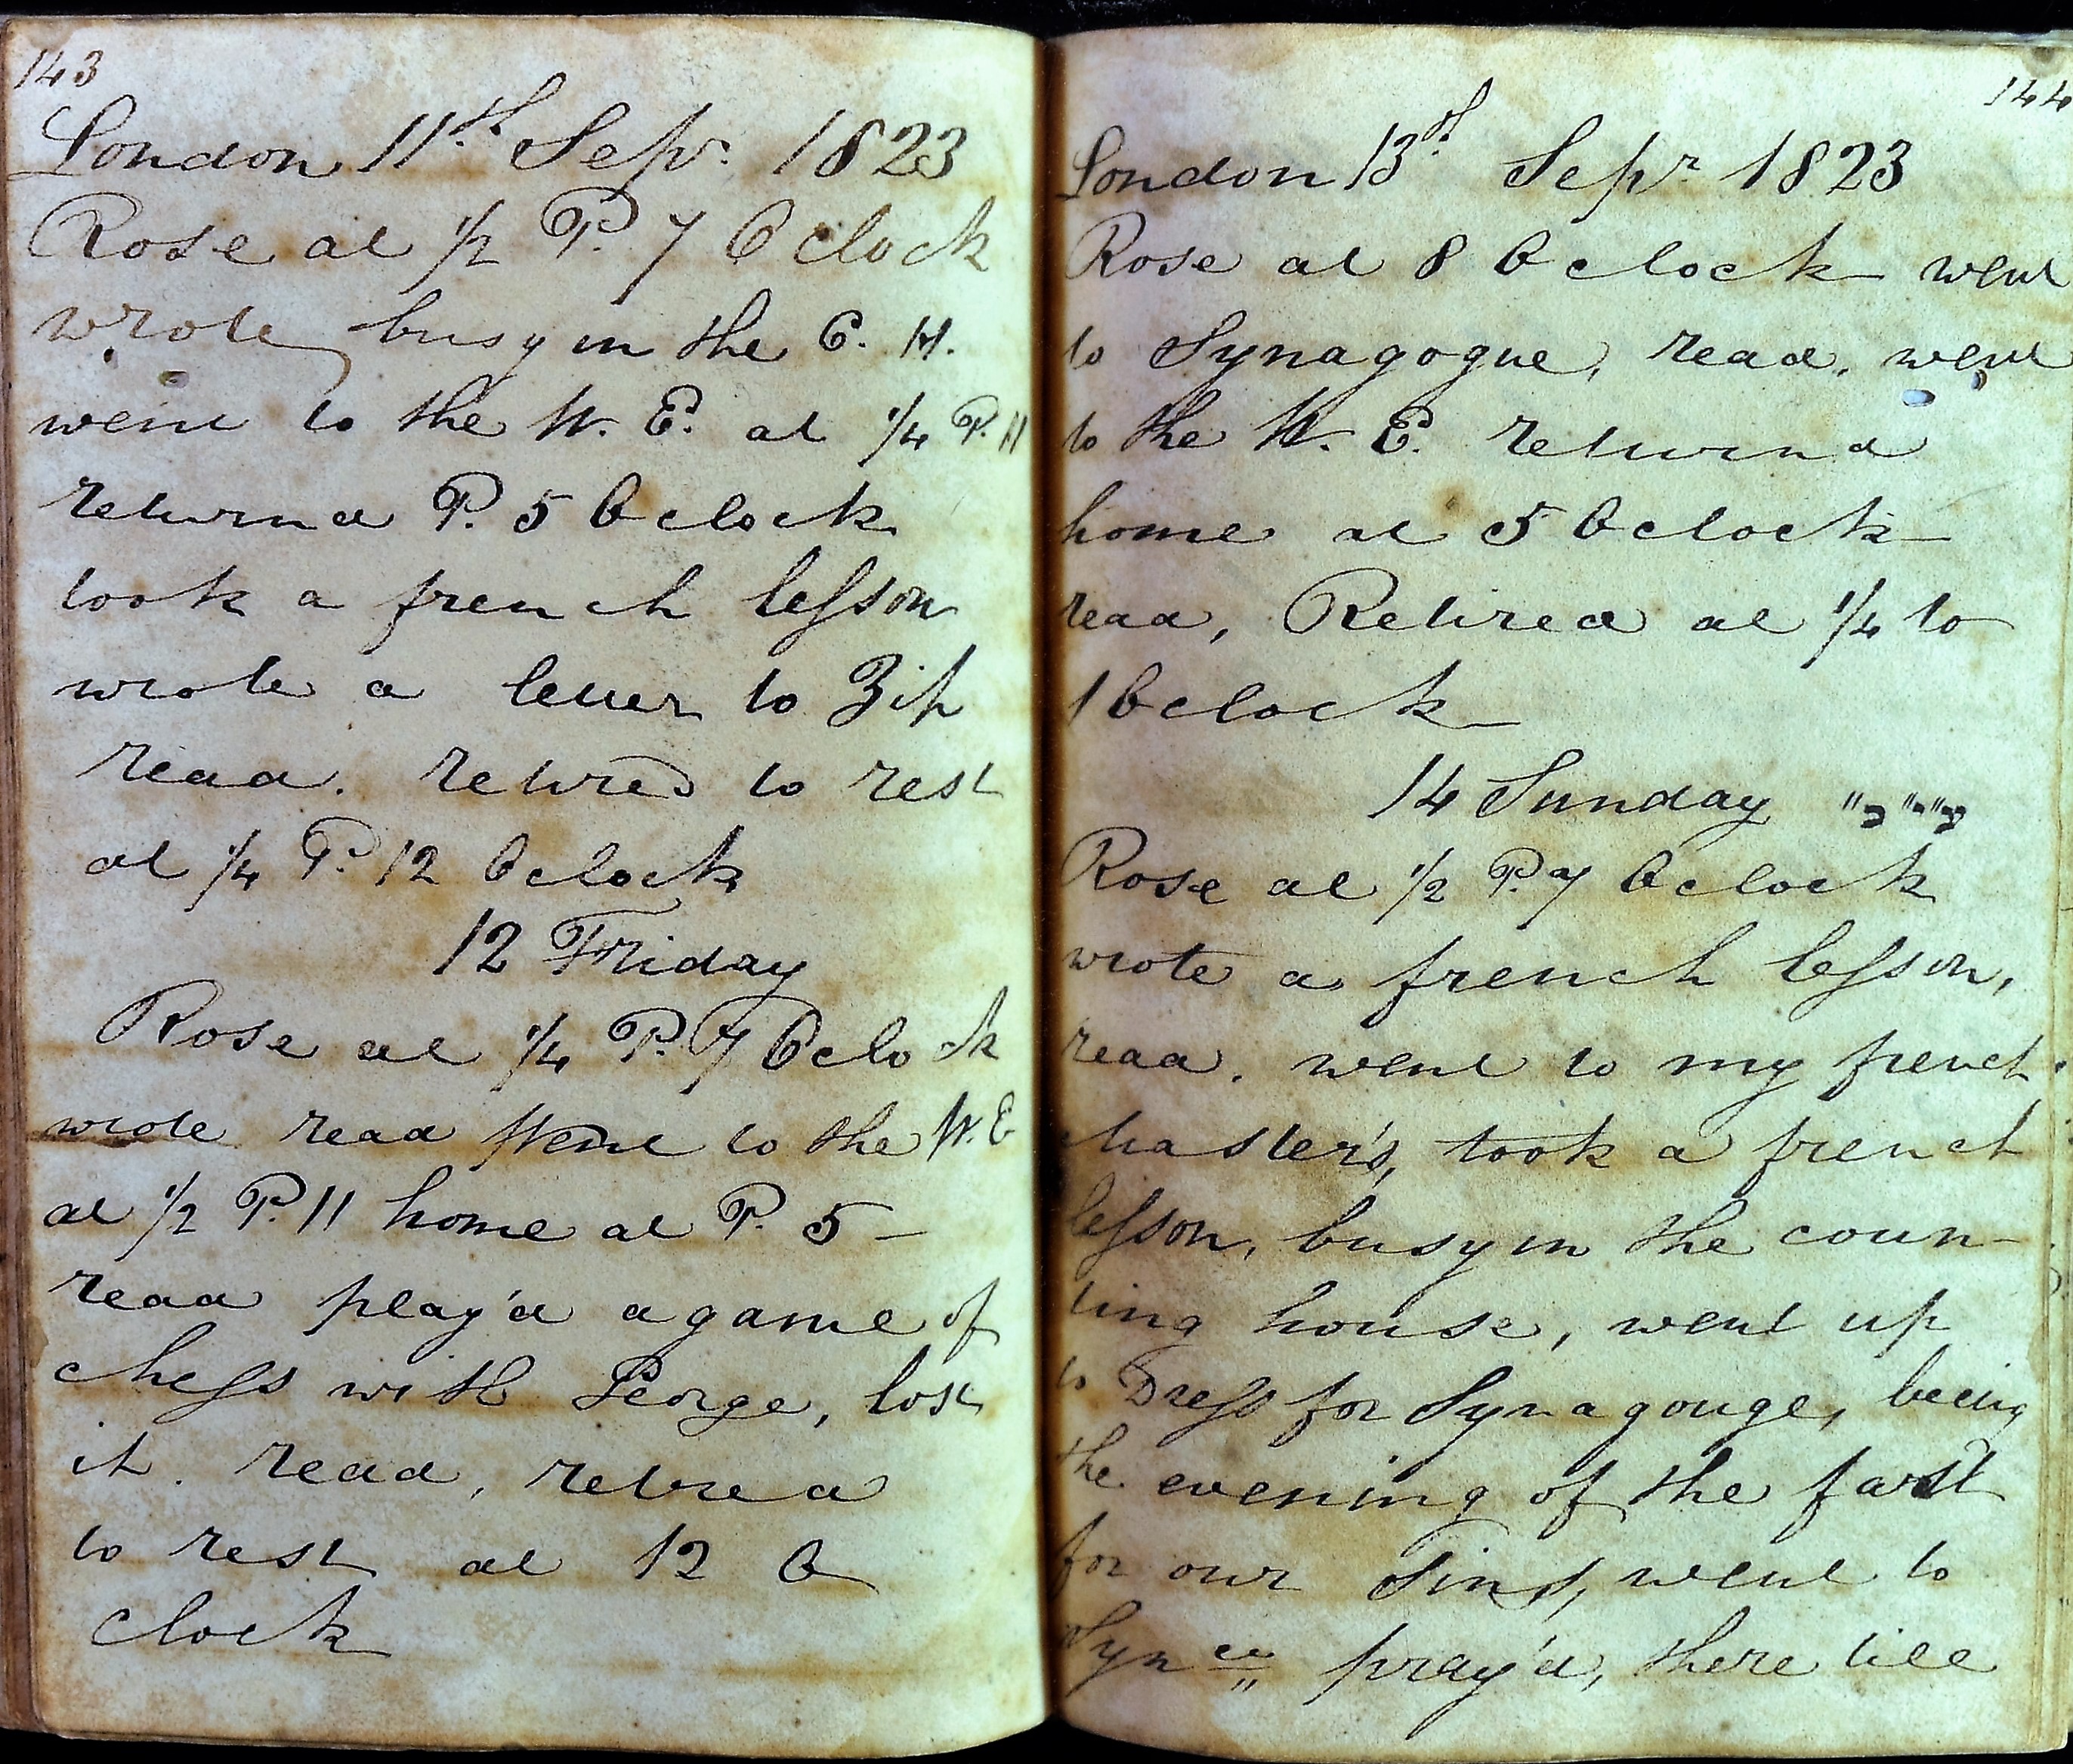 143
London 11th Sepr. 1823
Rose at 1/2 P. 7 O clock
wrote, busy in the C. H.
went to the W. E. at 1/4 P. 11
returnd P. 5 O clock
took a french lesson
wrote a letter to Zip
read. retired to rest
at 1/4 P. 12 Oclock
12 Friday
Rose at 1/4 P. 7 Oclock
wrote read Went to the W. E
at 1/2 P. 11 home at P. 5 —
read play'd a game of
chess with George, lost
it. read, retired
to rest at 12 O
Clock
144
London 13th Sepr 1823
Rose at 8 O clock went
to Synagogue, read, went
to the W. E. returnd
home at 5 Oclock
read, Retired at 1/4 to
1 Oclock
14 Sunday
Rose at 1/2 P. 7 Oclock
wrote a french lesson,
read. went to my french
Master's, took a french
lesson, busy in the coun-
ting house, went up
to Dress for Synagouge, being
the evening of the fast
for our Sins, went to
Syn pray'd, there till